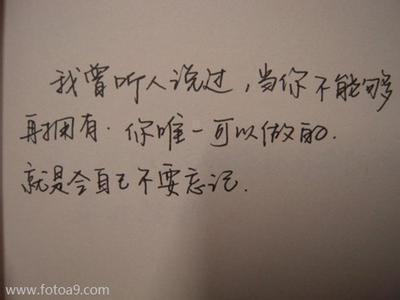 我曾听人说过，当你不能够
再拥有．你唯一可以做的．
就是令自己不要忘记．
www.fotoa9.com